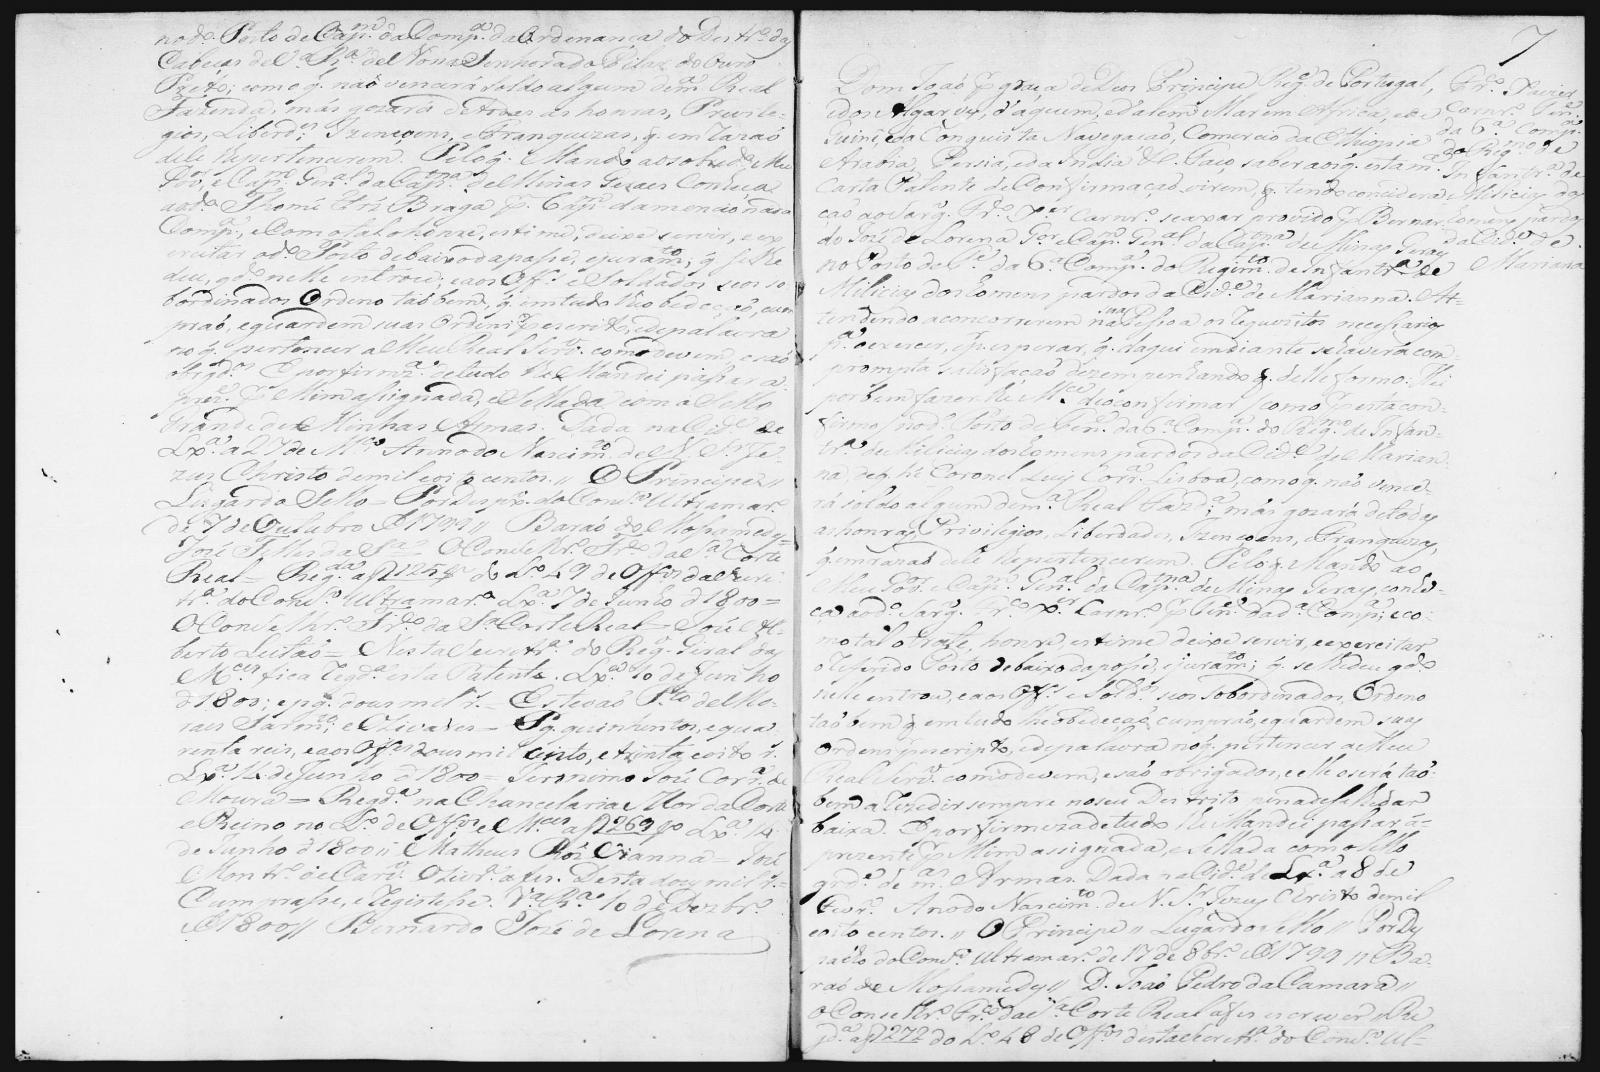 no d.º Posto de Cap.m da Comp.ª da Ordenança do Destr.º das
Cabeças de V.ª R.ª de Nossa Senhora do Pilar do Ouro
Preto; como q. não vencerá soldo algum de m.ª Real
Fazenda, mas gozará de todas as honras, Privile-
gios, Liberd.es Izençoens, e Franquezas, q. em razaõ
dele lhe pertencerem. Pelo q. Mando ao sobred.º Meu
Gov.or e Cap.m Gen.al da Cap.nia de Minas Geraes conheça
ao d.º Thomé Braga p. Cap.m da mencionada
Comp.ª, e como tal o honre, estime, deixe servir, e ex-
ercitar o d.º Posto debaixo da posse, e juram.to, q. se lhe
deu, q.do nelle entrou; e aos Off.es e Soldados seos so-
bordinados Ordeno taõbem, q. em tudo lhe obedeçaõ, cum-
praõ, e guardem suas Ordens p. escrito, e de palavra
no q. pertencer a Meu Real Serv.º como devem, e saõ
obrigd.os E por firmz.ª de tudo lhe Mandei passar a
prez.te p. Mim assignada, e Sellada com o Sello
Grande de Minhas Armas. Dada na Cid.e de
Lx.ª a 27 de M.ço Anno do Nascim.to de N. Sr. Je-
zus Christo de mil e oito centos // O Principe //
Lugar do Sello = Por desp.º do Cons.º Ultramar.º
de 7 de Outubro d 1799 // Baraõ de Mossamedes =
José Telles da S.ª = O Cons.º Fr.co da S.ª Corte
Real = Reg.da a f 125 do L.º 49 de Off.os da Secre-
tr.ª do Cons.º Ultramar.º Lx.ª 7 de Junho d 1800 =
O Cons.º Fr.co da S.ª Corte Real = José Al-
berto Leitaõ = Nesta Secret.ª do Reg.º Geral das
M.ces fica Regd.ª esta Patente. Lx.ª 10 de Junho
d 1800; e pg. dous mil r.s = Estevaõ P.to de Mo-
raes Sarm.to e Olivares = Pg. quinhentos, e qua-
renta reis, e aos Off.es dous mil cento, e trinta e oito r.s
Lx.ª 14 de Junho d 1800 = Jeronimo José Corr.ª de
Moura = Regd.ª na Chancelaria Mor da Corte
e Reino no L.º de Off.os e M.ces a f 269 Lx.ª 14
de Junho d 1800 // Matheus Roiz Vianna = José
Desta dous mil r.s =
Cumprasse, e Registesse. V.ª R.ª 10 de Dezbr.º
d 1800 // Bernardo José de Lorena
7
Dom Joaõ p. graça de Deos Principe Reg.e de Portugal,
e dos Algarves, d'aquem, e d'alem Mar em Africa, e de
Guiné, e da Conquista Navegacaõ, Comercio da Ethiopia
Arabia, Persia, e da India &c. Faço saber aos q. esta m.ª
Carta Patente de Confirmaçaõ virem, q. tendo concidera-
çaõ ao Sarg.to Fr.co X.er Carnr.º se axar provido p. Bernar-
do José de Lorena G.or e Cap.m Gen.al da Cap.nia de Minas Geraes
no Posto de da 6.ª Comp.ª do Regim.to de Infantr.ª de
Milicias dos homens pardos da Cid.e de Marianna. At-
tendendo a concorrerem na sua Pessoa os requezitos necessarios
p.ª o exercer, e p. esperar, q. daqui em diante se haverá com
prompta satisfaçaõ dezempenhando q. delle formo. Hei
por bem fazer lhe M.ce de o confirmar (como p. esta con-
firmo) no d. Posto de da 6.ª Comp.ª do Reg.to de Infan-
tr.ª de Milicias dos homens pardos da Cid.e de Marian-
na, de q. hé Coronel Luis Corr.ª Lisboa, como q. naõ vence-
rá soldo algum de m.ª Real Fazd.ª; mas gozará de todas
as honras, Privilegios, Liberdades, Izençoens, e Franquezas,
q. em razaõ delle lhe pertencerem. Pelo q. Mando ao
Meu Gov.or e Cap.m Gen.al da Cap.nia de Minas Geraes conhe-
ça ao d.º Sarg.to Fr.co X.er Carnr.º p. da d.ª Comp.ª, e co-
mo tal o trate, honre, estime, deixe servir, e exercitar
o referido Posto debaixo da posse, e juram.to; q. se lhe deu q.do
nelle entrou, e aos Off.es e Sold.os seos Sobordinados, Ordeno
taõbem q. em tudo lhe obedeçaõ, cumpraõ, e guardem suas
Ordens por escrito, e de palavra no q. pertencer a Meu
Real Serv.º como devem, e saõ obrigados, e elle será taõ-
bem a rezedir sempre no seu Destrito pena de se lhe dar
baixa. E por firmeza de tudo lhe Mandei passar a-
prezente p. Mim assignada, e Sellada com o Sello
grd.e de m.as Armas. Dada na Cid.e de Lx.ª a 8 de
Fevr.º Anno do Nascim.to de N. Sr. Jezus Christo de mil
e oito centos. // O Principe // Lugar do Sello // Por Des
pacho do Cons.º Ultramar.º de 17 de 8br.º d 1799 // Ba-
raõ de Mossamedes // D. Joaõ Pedro da Camara //
O Cons.º Fr.co da S.ª Corte Real a fes escrever // Re-
gd.ª a f 272 do L.º 48 de Off.os desta Secretr.ª do Cons.º Ul-
Fr.co Xavier
Carnr.º
da 6.ª Comp.ª
do Reg.to de
Infantr.ª de
Milicias dos
homens pardos
da Cid.e de
Mariana